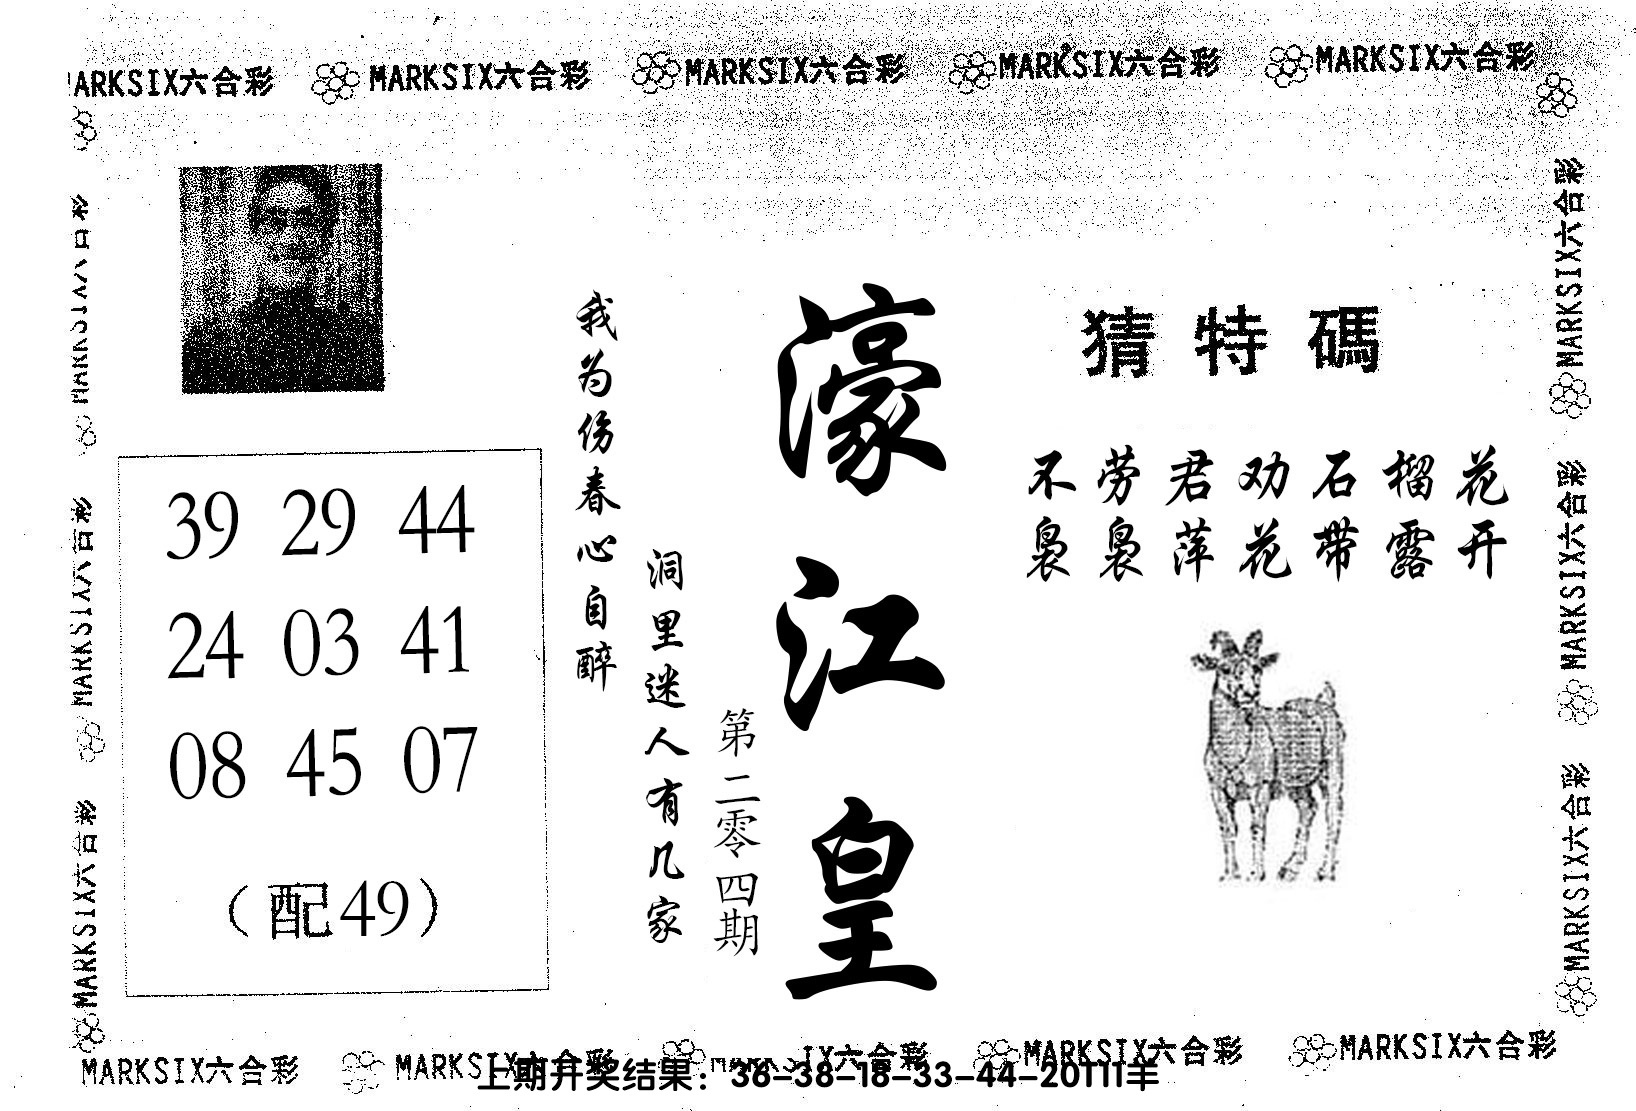 MARKSIX六合彩 MARKSIX六合彩 MARKSIX六合彩 MARKSIX六合彩
猜特碼
不劳君劝石榴花
袅袅萍花带露开
濠江皇
第二零四期
洞里迷人有几家
我为伤春心自醉
39 29 44
24 03 41
08 45 07
（配49）
MARKSIX六合彩
MARKSIX六合彩
MARKSIX六合彩
MARKSIX六合彩
MARKSIX六合彩
MARKSIX六合彩 MARKSIX六合彩 MARKSIX六合彩 MARKSIX六合彩
上期开奖结果：36-38-18-33-44-20T11羊